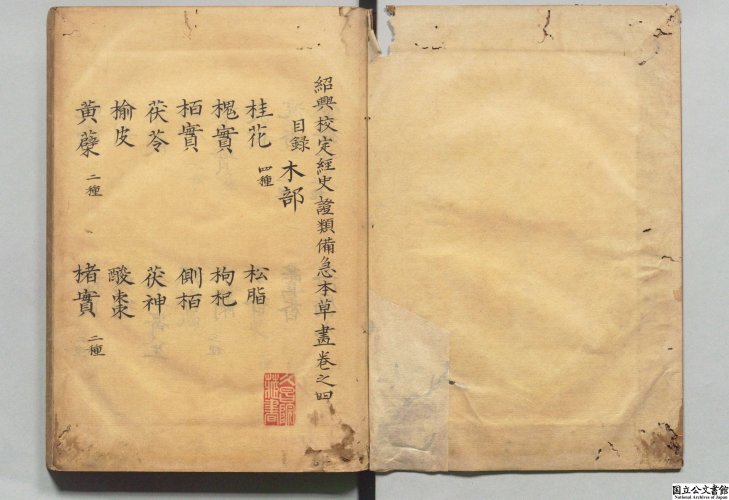 紹興校定經史證類備急本草畫卷之四
目録 木部
桂花 四種 松脂
槐實 枸杞
栢實 側栢
茯苓 茯神
榆皮 酸棗
黃蘗 二種 楮實 二種
国立公文書館
National Archives of Japan